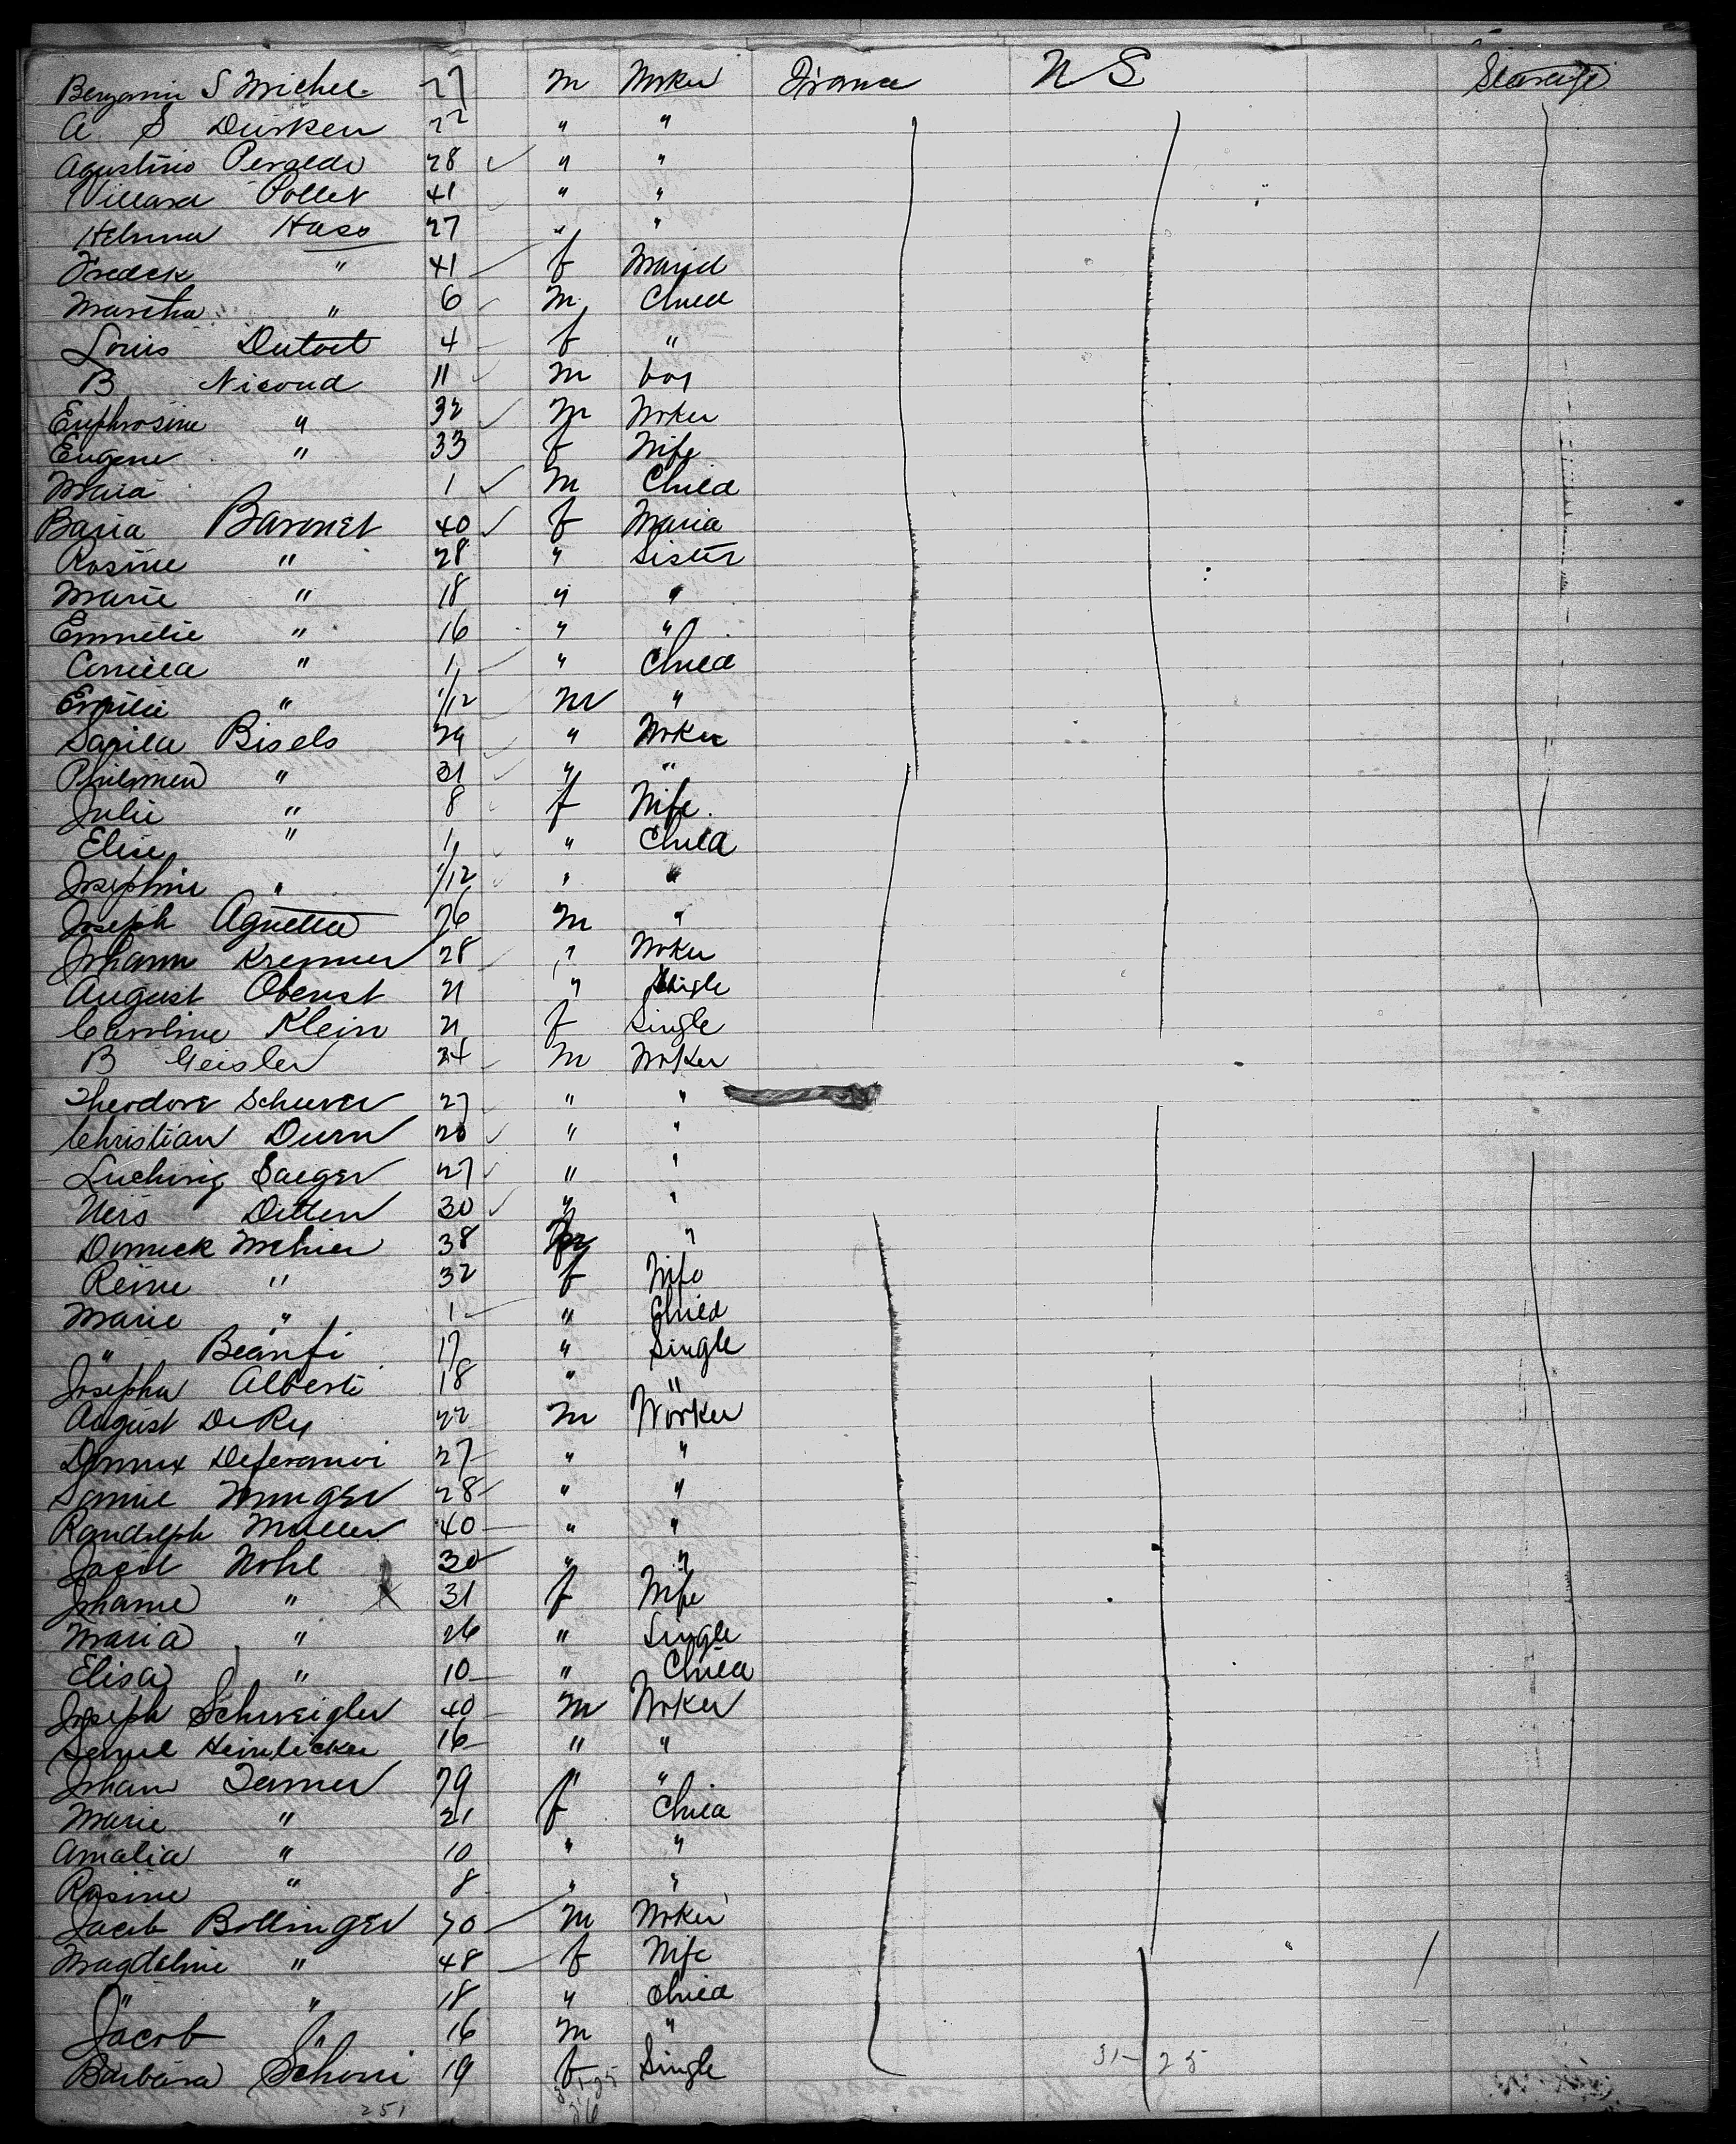 Benjamin S Michel 27 m Worker France U S Steerage
A S Durken 22 " "
Agustino Peraldo 28 " "
Villard Pollet 41 " "
Helmina Haso 27 " "
Fredek " 41 f Maried
Martha " 6 m Child
Louis Dutoit 4 f "
B Nicoud 11 m boy
Euphrosine " 32 m Worker
Eugene " 33 f Wife
Maria 1 m Child
Baria Baronet 40 f Maria
Rosine " 28 " Sister
Marie " 18 " "
Emmelie " 16 " "
Camilla " 1 " Child
Emilie " 1/12 m "
Bisels 29 " Worker
Philomen " 31 " "
Julie " 8 f Wife
Elise " 1 " Child
Josephine " 1/12 " "
Joseph Agnella 26 m "
Johann Kremer 28 " Worker
August Oberst 21 " Single
Caroline Klein 21 f Single
B Geisler 24 m Worker
Theodore Scheerer 27 " "
Christian Durn 20 " "
Ludwig Saeger 27 " "
Ners Ditten 30 " "
Dominick Mehier 38 m "
Reine " 32 f Wife
Marie " 1 " Child
" Beanfi 17 " Single
Josepha Alberti 18 " "
August De Ry 22 m Worker
Deferanoi 27 " "
Samuel Munger 28 " "
Randolph Muller 40 " "
Jacob Nohl 30 " "
Johanne " 31 f Wife
Maria " 26 " Single
Elisa " 10 " Child
Joseph Schweigler 40 m Worker
Samuel Heimlicker 16 " "
Johann Tanner 29 " "
Marie " 21 f Child
Amalia " 10 " "
Rosine " 8 " "
Jacob Bollinger 50 m Worker
Magdeline " 48 f Wife
" " 18 " Child
Jacob " 16 m "
Barbara Schoni 19 f Single
31-25
251